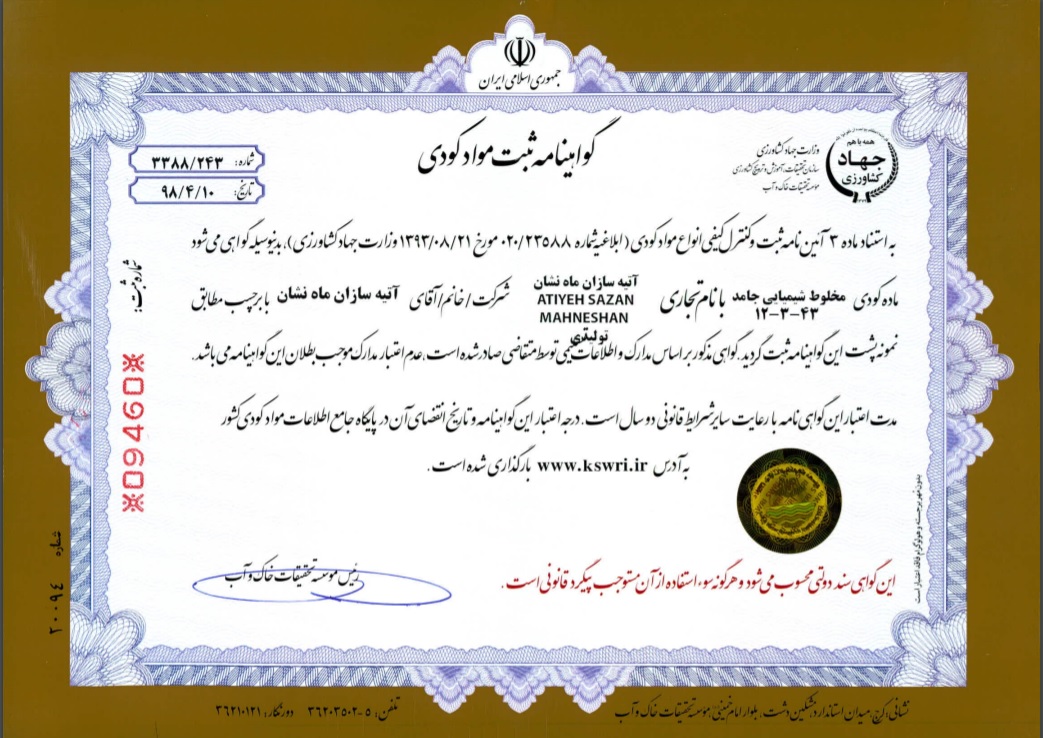 جمهوری اسلامی ایران
همه با هم
جهاد
کشاورزی
وزارت جهاد کشاورزی
سازمان تحقیقات، آموزش و ترویج کشاورزی
موسسه تحقیقات خاک و آب
گواهینامه ثبت مواد کودی
شماره: ۳۳۸۸/۲۴۳
تاریخ: ۹۸/۴/۱۰
به استناد ماده ۳ آئین نامه ثبت و کنترل کیفی انواع مواد کودی (ابلاغیه شماره ۰۲۰/۲۳۵۸۸ مورخ ۱۳۹۳/۰۸/۲۱ وزارت جهاد کشاورزی)، بدینوسیله گواهی می شود
ماده کودی مخلوط شیمیایی جامد ۱۲-۳-۴۳ با نام تجاری آتیه سازان ماه نشان ATIYEH SAZAN MAHNESHAN شرکت / خانم / آقای آتیه سازان ماه نشان با برچسب مطابق
تولیدی
نمونه پشت این گواهینامه ثبت گردید. گواهی مذکور براساس مدارک و اطلاعات توسط متقاضی صادر شده است، عدم اعتبار مدارک موجب بطلان این گواهینامه می باشد.
مدت اعتبار این گواهی نامه با رعایت سایر شرایط قانونی دو سال است. درجه اعتبار این گواهینامه و تاریخ انقضای آن در پایگاه جامع اطلاعات مواد کودی کشور
به آدرس www.kswri.ir بارگذاری شده است.
این گواهی سند دولتی محسوب می شود و هرگونه سوء استفاده از آن مستوجب پیگرد قانونی است.
رئیس موسسه تحقیقات خاک و آب
شماره ثبت:
※09460※
شماره ۲۰۰۹۴
بدون مهر برجسته و هولوگرام فاقد اعتبار است
نشانی: کرج، میدان استاندارد، مشکین دشت، بلوار امام خمینی، موسسه تحقیقات خاک و آب
تلفن: ۵-۳۶۲۰۳۵۰۲ دورنگار: ۳۶۲۱۰۱۲۱